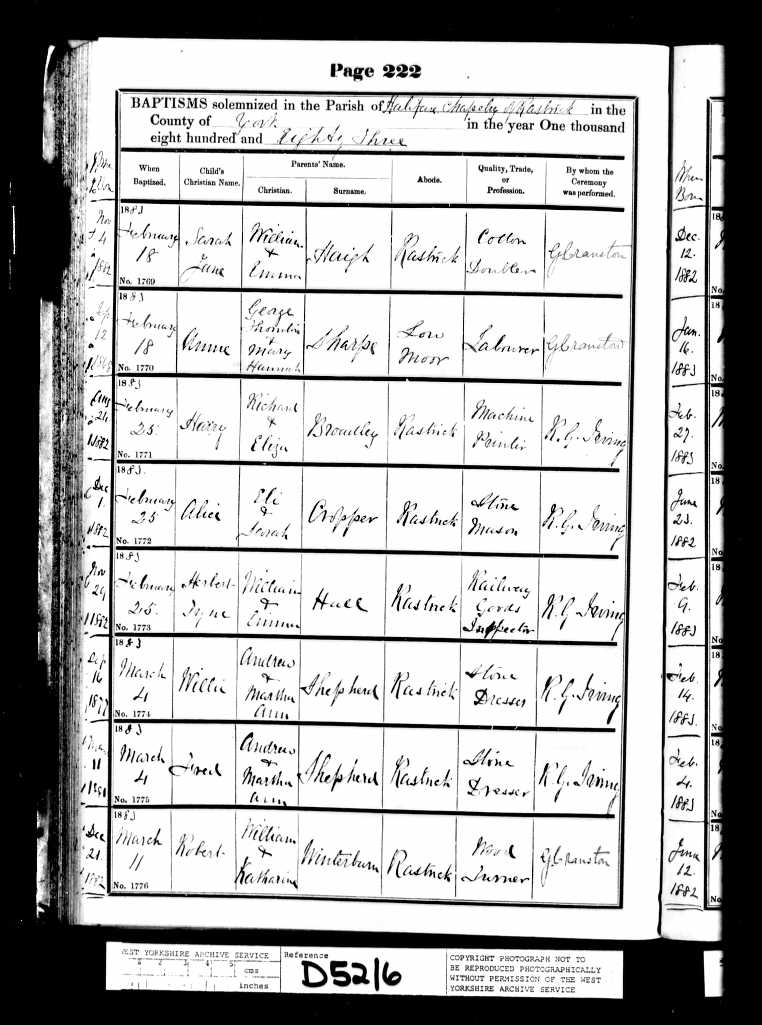 Page 222
BAPTISMS solemnized in the Parish of Halifax Chapelry of Rastrick in the
County of York in the year One thousand
eight hundred and Eighty Three
When Baptized.
Child's Christian Name.
Parents' Name.
Christian.
Surname.
Abode.
Quality, Trade, or Profession.
By whom the Ceremony was performed.
Nov
4
1882
1883
February
18
No. 1769
Sarah
Jane
William
&
Emma
Haigh
Rastrick
Cotton
Doubler
G Cranston
12
1883
February
18
No. 1770
Annie
George
&
Mary
Hannah
Sharpe
Low
Moor
Labourer
G Cranston
Aug
24
1882
1883
February
25
No. 1771
Harry
Richard
&
Eliza
Broadley
Rastrick
Machine
R. G. Irving
Dec
1
1882
1883
February
25
No. 1772
Alice
Eli
&
Sarah
Cropper
Rastrick
Stone
Mason
R. G. Irving
Nov
29
1882
1883
February
25.
No. 1773
Herbert
Tyne
William
&
Emma
Hall
Rastrick
Railway
Goods
Inspector
R. G. Irving
Sep
16
1877
1883
March
4
No. 1774
Willie
Andrew
&
Martha
Ann
Shepherd
Rastrick
Stone
Dresser
R. G. Irving
11
1883
March
4
No. 1775
Fred
Andrew
&
Martha
Ann
Shepherd
Rastrick
Stone
Dresser
R. G. Irving
Dec
21
1882
1883
March
11
No. 1776
Robert
William
&
Katharine
Winterburn
Rastrick
Wood
Turner
G Cranston
When
Born
Dec.
12.
1882
Jan.
16.
1883
Feb.
27.
1883
June
23.
1882
Feb.
9.
1883
Feb.
14.
1883.
Feb.
4.
1883
June
12.
1882
WEST YORKSHIRE ARCHIVE SERVICE
1 2 3 4 5
cms
inches
Reference
D52/6
COPYRIGHT PHOTOGRAPH NOT TO
BE REPRODUCED PHOTOGRAPHICALLY
WITHOUT PERMISSION OF THE WEST
YORKSHIRE ARCHIVE SERVICE